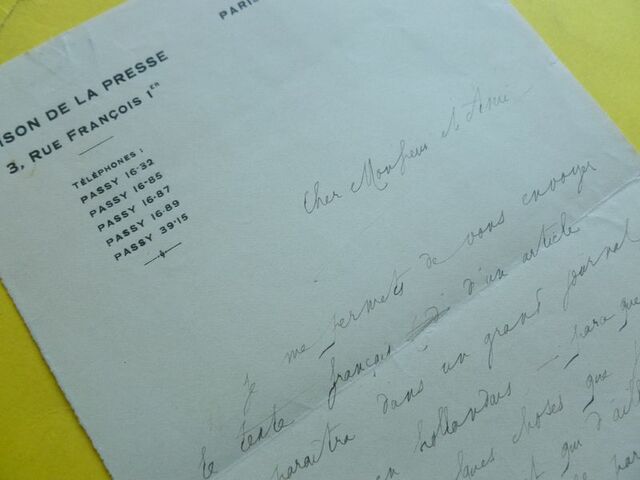 PARIS
ISON DE LA PRESSE
3, RUE FRANÇOIS 1ER
TÉLÉPHONES :
PASSY 16-32
PASSY 16-85
PASSY 16-87
PASSY 16-89
PASSY 39-15
Cher Monsieur et Ami
Je me permets de vous envoyer
le texte français d'un article
paraître dans un grand journal
en hollandais
ques choses que
et qui d'ail